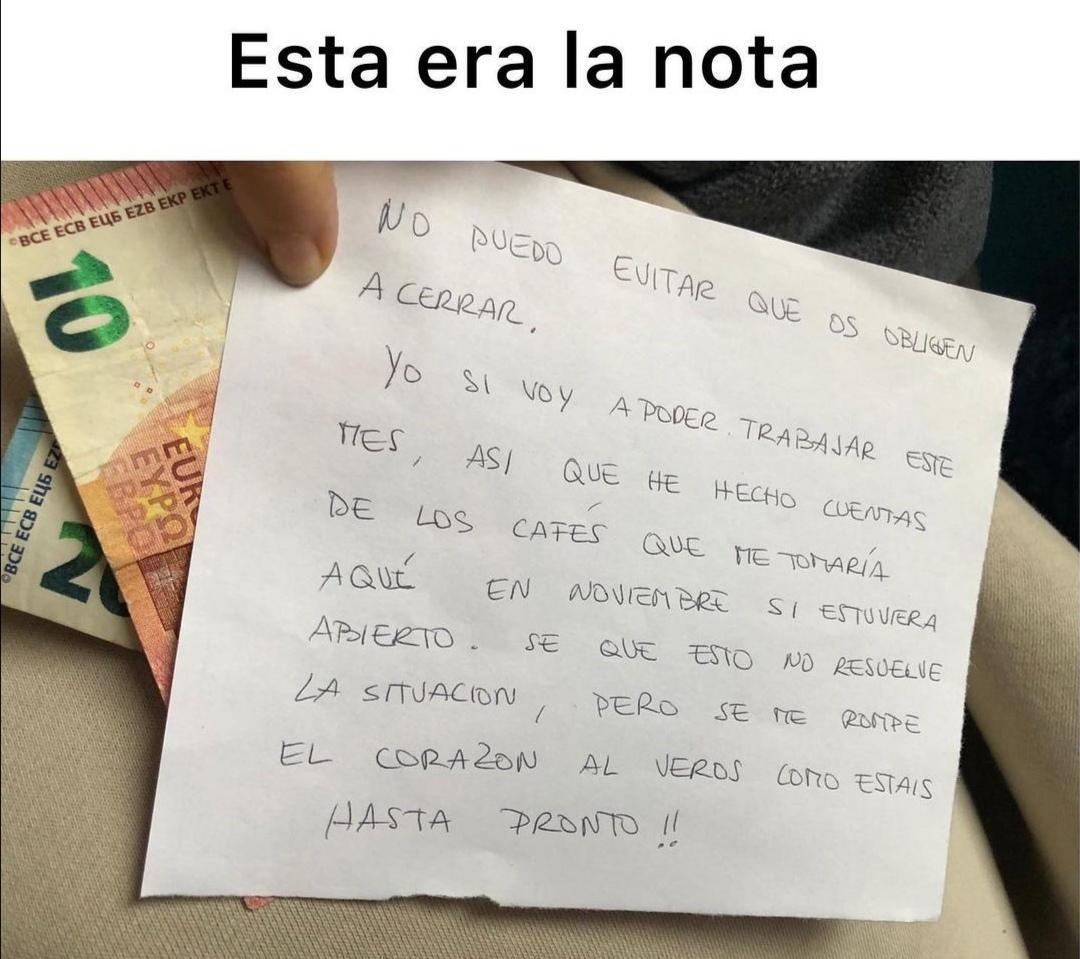 Esta era la nota
©BCE ECB ЕЦБ EZB EKP EKT E
10
EURO
ΕΥΡΩ
ЕВРО
©BCE ECB ЕЦБ EZ
20
NO PUEDO EVITAR QUE OS OBLIGEN
A CERRAR.
YO SI VOY A PODER TRABAJAR ESTE
MES, ASI QUE HE HECHO CUENTAS
DE LOS CAFÉS QUE ME TOMARÍA
AQUÍ EN NOVIEMBRE SI ESTUVIERA
ABIERTO. SE QUE ESTO NO RESUELVE
LA SITUACION, PERO SE ME ROMPE
EL CORAZON AL VEROS COMO ESTAIS
HASTA PRONTO !!